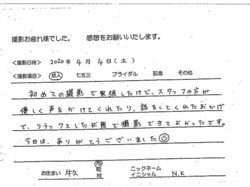 撮影お疲れ様でした。　感想をお願いいたします。
<撮影日時>　2020年 4月 4日(土)
<撮影項目>　成人　七五三　ブライダル　記念　その他
初めての撮影で緊張したけど、スタッフの方が
優しく声をかけてくれたり、話をしてくれたおかげ
で、リラックスした状態で撮影できてよかったです。
今日は、ありがとうございました
お住まい　市 町 村　ニックネーム
イニシャル　N.K